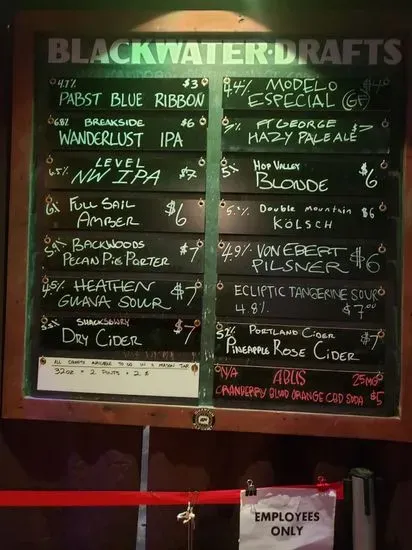 BLACKWATER·DRAFTS
4.7% $3
PABST BLUE RIBBON
6.8% BREAKSIDE $6
WANDERLUST IPA
6.5% LEVEL
NW IPA $7
6% FULL SAIL
AMBER $6
5.9% BACKWOODS
PECAN PIE PORTER $7
HEATHEN
GUAVA SOUR $7
SHACKSBURY
DRY CIDER $7
ALL DRAFTS AVAILABLE TO GO IN A MASON JAR
32OZ = 2 PINTS + 2 $
4.4% MODELO
ESPECIAL
FT GEORGE
HAZY PALE ALE $7
5% HOP VALLEY
BLONDE $6
DOUBLE MOUNTAIN $6
KÖLSCH
4.9% VON EBERT
PILSNER $6
ECLIPTIC TANGERINE SOUR
4.8% $7.00
5.2% PORTLAND CIDER
PINEAPPLE ROSE CIDER $7
N/A ABLIS 25MG
CRANBERRY BLOOD ORANGE CBD SODA $5
EMPLOYEES
ONLY